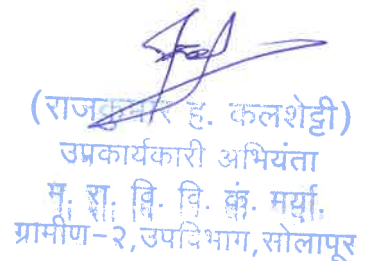 (राजकुमार ह. कलशेट्टी)
उप्रकार्यकारी अभियंता
म. रा. वि. वि. कं. मर्या.
ग्रामीण-२,उपविभाग,सोलापूर